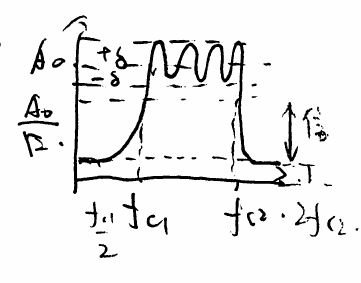 A₀
+δ
-δ
A₀/√2.
T
fc1/2 fc1 fc2 · 2fc2.